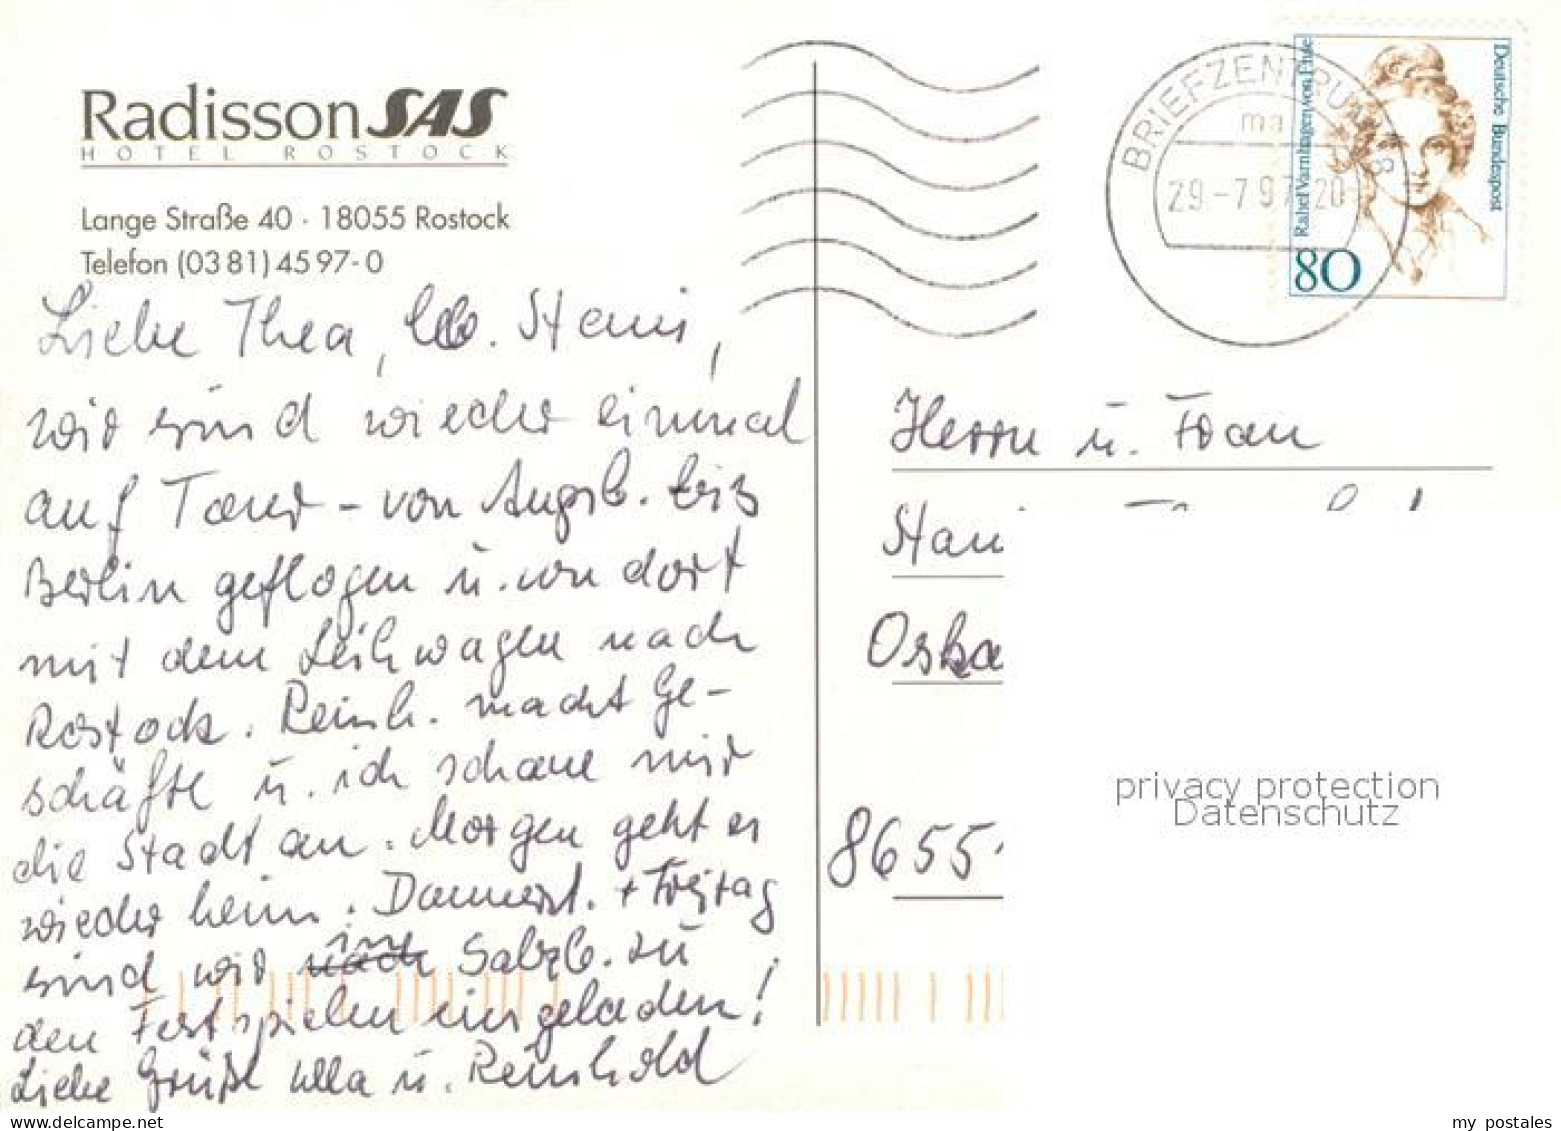 Radisson SAS
HOTEL ROSTOCK
Lange Straße 40 · 18055 Rostock
Telefon (03 81) 45 97-0
Liebe Thea, lb. Hans,
wir sind wieder einmal
auf Tour - von Augsb. bis
Berlin geflogen u. von dort
mit dem Leihwagen nach
Rostock. Reinh. macht Ge-
schäfte u. ich schaue mir
die Stadt an. Morgen geht es
wieder heim. Donnerst. + Freitag
sind wir in Salzb. zu
den Festspielen eingeladen!
Liebe Grüße Ulla u. Reinhold
BRIEFZENTRUM 18
ma
29.-7.97 20
Deutsche Bundespost
Rahel Varnhagen von Ense
80
Herrn u. Frau
Oska
8655
privacy protection
Datenschutz
my postales